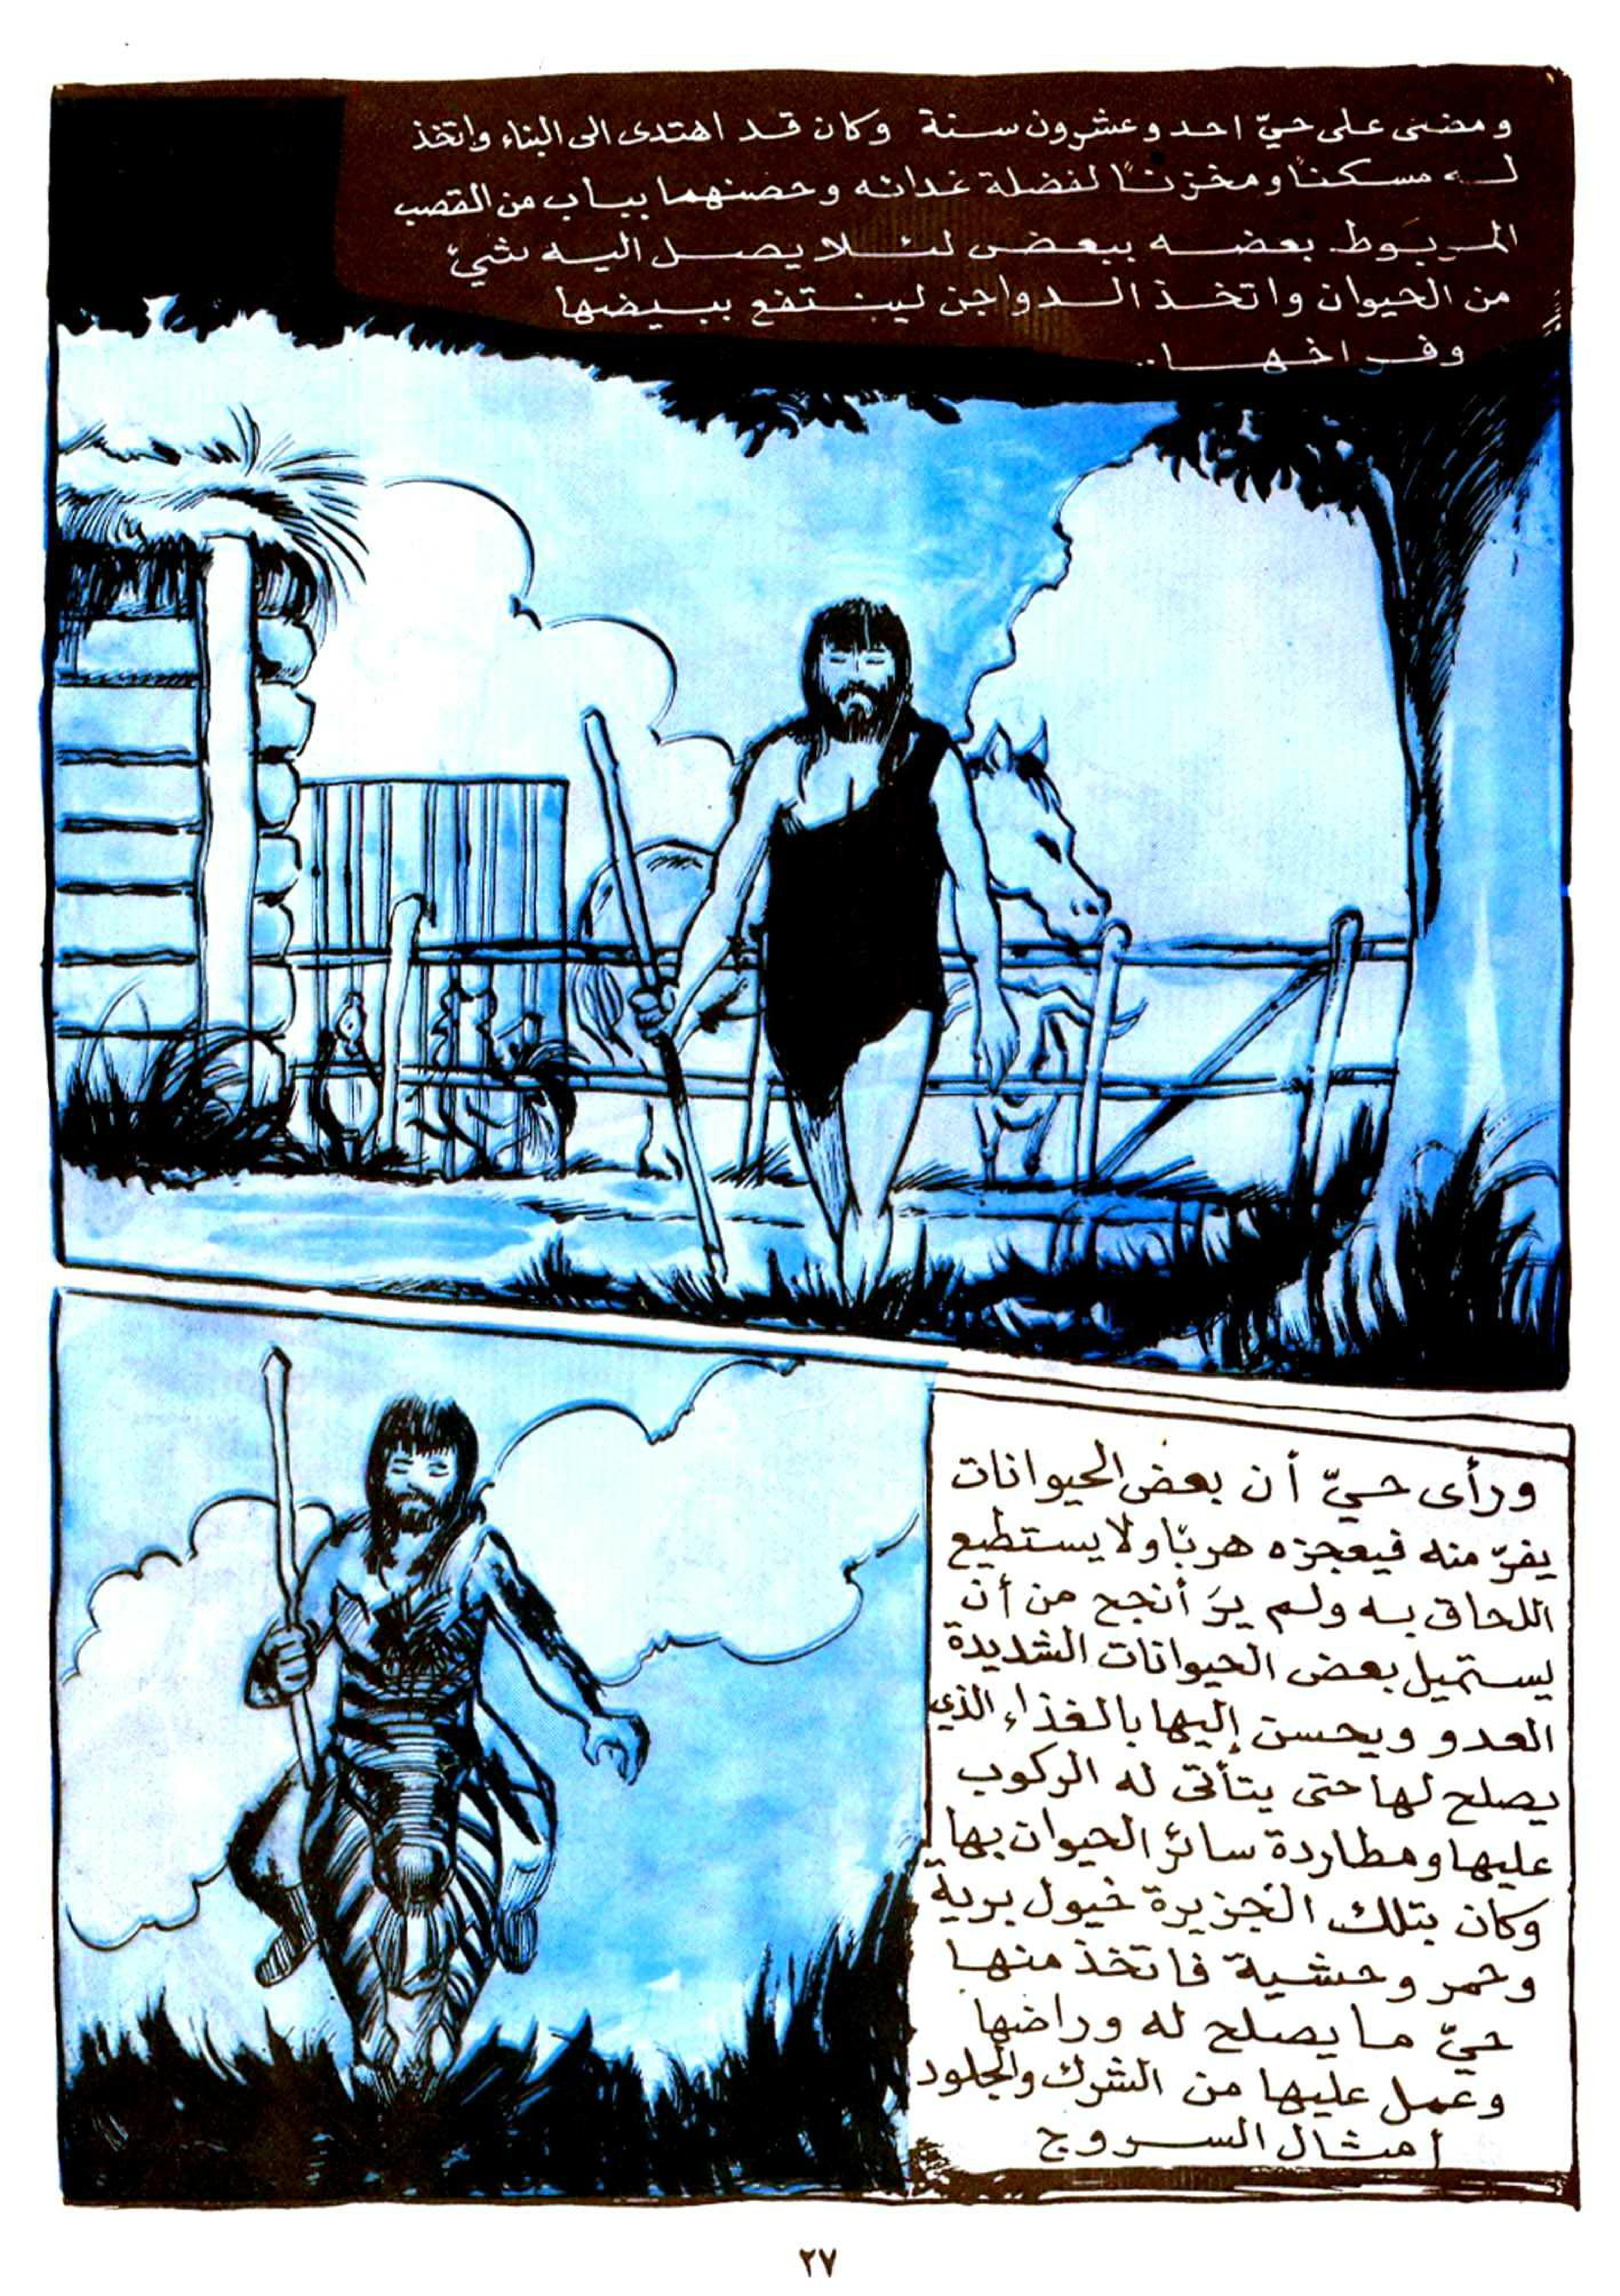 ومضى على حيّ احد وعشرون سنة وكان قد اهتدى الى البناء واتخذ
له مسكنًا ومخزنًا لفضلة غدائه وحصنهما بباب من القصب
المربَوط بعضه ببعض لئلا يصل اليه شيء
من الحيوان واتخذ الدواجن لينتفع ببيضها
وفراخها..
ورأى حيّ أن بعض الحيوانات
يفرّ منه فيعجزه هربًا ولا يستطيع
اللحاق به ولم يرَ أنجح من أن
يستميل بعض الحيوانات الشديدة
العدو ويحسن إليها بالغذاء الذي
يصلح لها حتى يتأتى له الركوب
عليها ومطاردة سائر الحيوان بها
وكان بتلك الجزيرة خيول برية
وحمر وحشية فاتخذ منها
حيّ ما يصلح له وراضها
وعمل عليها من الشرك والجلود
أمثال السروج
٢٧